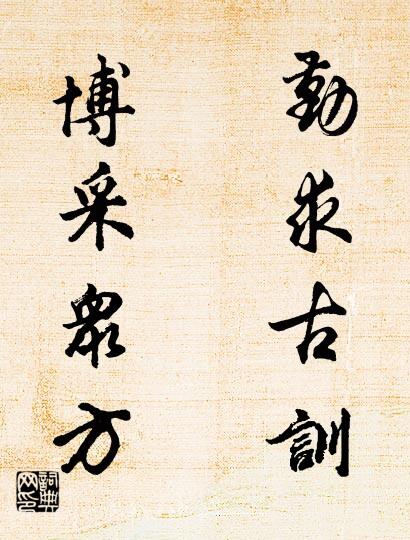 勤求古訓
博采眾方
詞典网印